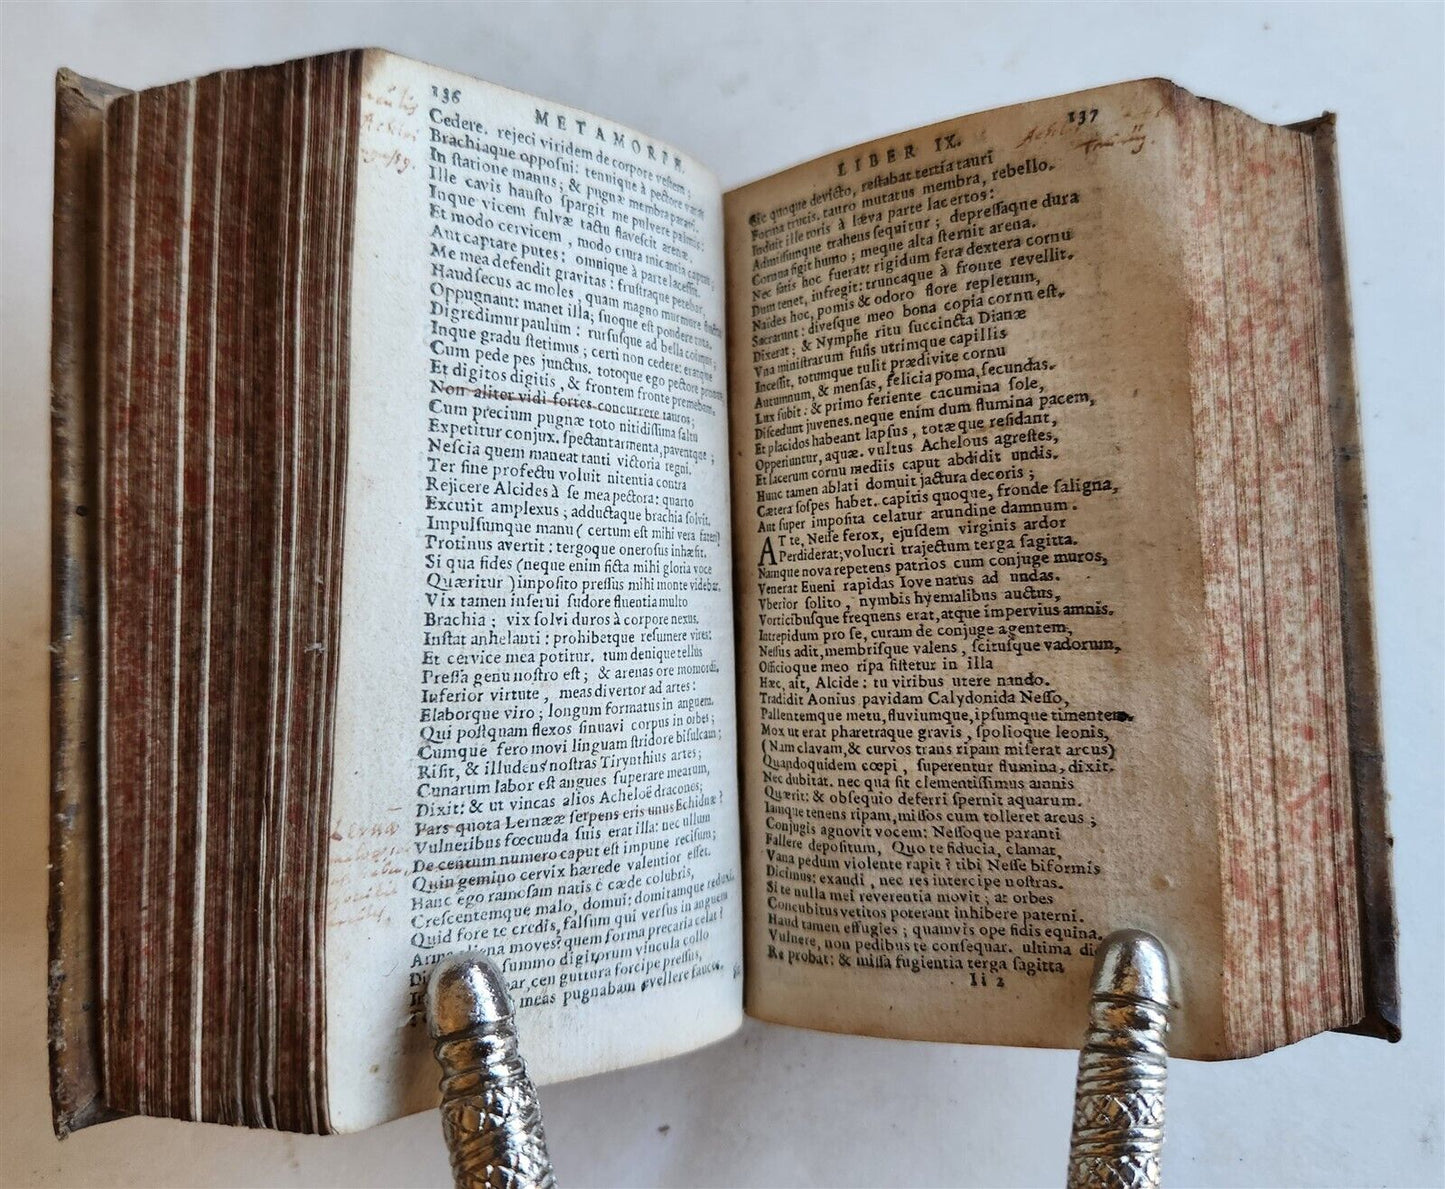 136
METAMORPH.
Cedere. rejeci viridem de corpore vestem;
Brachiaque opposui: tennique à pectore varas
In statione manus; & pugnæ membra paravi.
Ille cavis hausto spargit me pulvere palmis;
Inque vicem fulvæ tactu flavescit arenæ,
Et modo cervicem, modo crura micantia captat;
Aut captare putes; omnique à parte lacessit.
Me mea defendit gravitas: frustraque petebar,
Haud secus ac moles, quam magno murmure fluctus
Oppugnant: manet illa; suoque est pondere tuta.
Digredimur paulum: rursusque ad bella coimus;
Inque gradu stetimus; certi non cedere: eratque
Cum pede pes junctus. totoque ego pectore pronus
Et digitos digitis, & frontem fronte premebam.
Non aliter vidi fortes concurrere tauros;
Cum precium pugnæ toto nitidissima saltu
Expetitur conjux. spectant armenta, paventque;
Nescia quem maneat tanti victoria regni.
Ter sine profectu voluit nitentia contra
Rejicere Alcides à se mea pectora: quarto
Excutit amplexus; adductaque brachia solvit.
Impulsumque manu (certum est mihi vera fateri)
Protinus avertit: tergoque onerosus inhæsit.
Si qua fides (neque enim ficta mihi gloria voce
Quæritur) imposito pressus mihi monte videbar.
Vix tamen inserui sudore fluentia multo
Brachia; vix solvi duros à corpore nexus.
Instat anhelanti: prohibetque resumere vires:
Et cervice mea potitur. tum denique tellus
Pressa genu nostro est; & arenas ore momordi.
Inferior virtute, meas divertor ad artes:
Elaborque viro; longum formatus in anguem.
Qui postquam flexos sinuavi corpus in orbes;
Cumque fero movi linguam stridore bisulcam;
Risit, & illudens nostras Tirynthius artes;
Cunarum labor est angues superare mearum,
Dixit: & ut vincas alios Acheloë dracones;
Pars quota Lernææ serpens eris unus Echidnæ?
Vulneribus fœcunda suis erat illa: nec ullum
De centum numero caput est impune recisum;
Quin gemino cervix hærede valentior esset.
Hanc ego ramosam natis è cæde colubris,
Crescentemque malo, domui: domitamque reduxi.
Quid fore te credis, falsum qui versus in anguem
Arma aliena moves? quem forma precaria celat?
Di summo digitorum vincula collo
ar, ceu guttura forcipe pressus,
meas pugnabam evellere fauces.
137
LIBER IX.
Sic quoque devicto, restabat tertia tauri
Forma trucis. tauro mutatus membra, rebello.
Induit ille toris à læva parte lacertos:
Admissumque trahens sequitur; depressaque dura
Cornua figit humo; meque alta sternit arena.
Nec satis hoc fuerat: rigidum fera dextera cornu
Dum tenet, infregit: truncaque à fronte revellit.
Naides hoc, pomis & odoro flore repletum,
Sacrarunt: divesque meo bona copia cornu est.
Dixerat; & Nymphe ritu succincta Dianæ
Vna ministrarum fusis utrimque capillis
Incessit, totumque tulit prædivite cornu
Autumnum, & mensas, felicia poma, secundas.
Lux subit: & primo feriente cacumina sole,
Discedunt juvenes. neque enim dum flumina pacem,
Et placidos habeant lapsus, totæque residant,
Opperiuntur, aquæ. vultus Achelous agrestes,
Et lacerum cornu mediis caput abdidit undis.
Hunc tamen ablati domuit jactura decoris;
Cætera sospes habet. capitis quoque, fronde saligna,
Aut super imposita celatur arundine damnum.
AT te, Nesse ferox, ejusdem virginis ardor
Perdiderat; volucri trajectum terga sagitta.
Namque nova repetens patrios cum conjuge muros,
Venerat Eueni rapidas Iove natus ad undas.
Vberior solito, nymbis hyemalibus auctus,
Vorticibusque frequens erat, atque impervius amnis.
Intrepidum pro se, curam de conjuge agentem,
Nessus adit, membrisque valens, scitusque vadorum,
Officioque meo ripa sistetur in illa
Hæc, ait, Alcide: tu viribus utere nando.
Tradidit Aonius pavidam Calydonida Nesso,
Pallentemque metu, fluviumque, ipsumque timentem.
Mox ut erat pharetraque gravis, spolioque leonis,
(Nam clavam, & curvos trans ripam miserat arcus)
Quandoquidem cœpi, superentur flumina, dixit.
Nec dubitat. nec qua sit clementissimus amnis
Quærit: & obsequio deferri spernit aquarum.
Iamque tenens ripam, missos cum tolleret arcus;
Conjugis agnovit vocem: Nessoque paranti
Fallere depositum, Quo te fiducia, clamat,
Vana pedum violente rapit? tibi Nesse biformis
Dicimus: exaudi, nec res intercipe nostras.
Si te nulla mei reverentia movit; at orbes
Concubitus vetitos poterant inhibere paterni.
Haud tamen effugies; quamvis ope fidis equina.
Vulnere, non pedibus te consequar. ultima di
Re probat: & missa fugientia terga sagitta
Ii 2